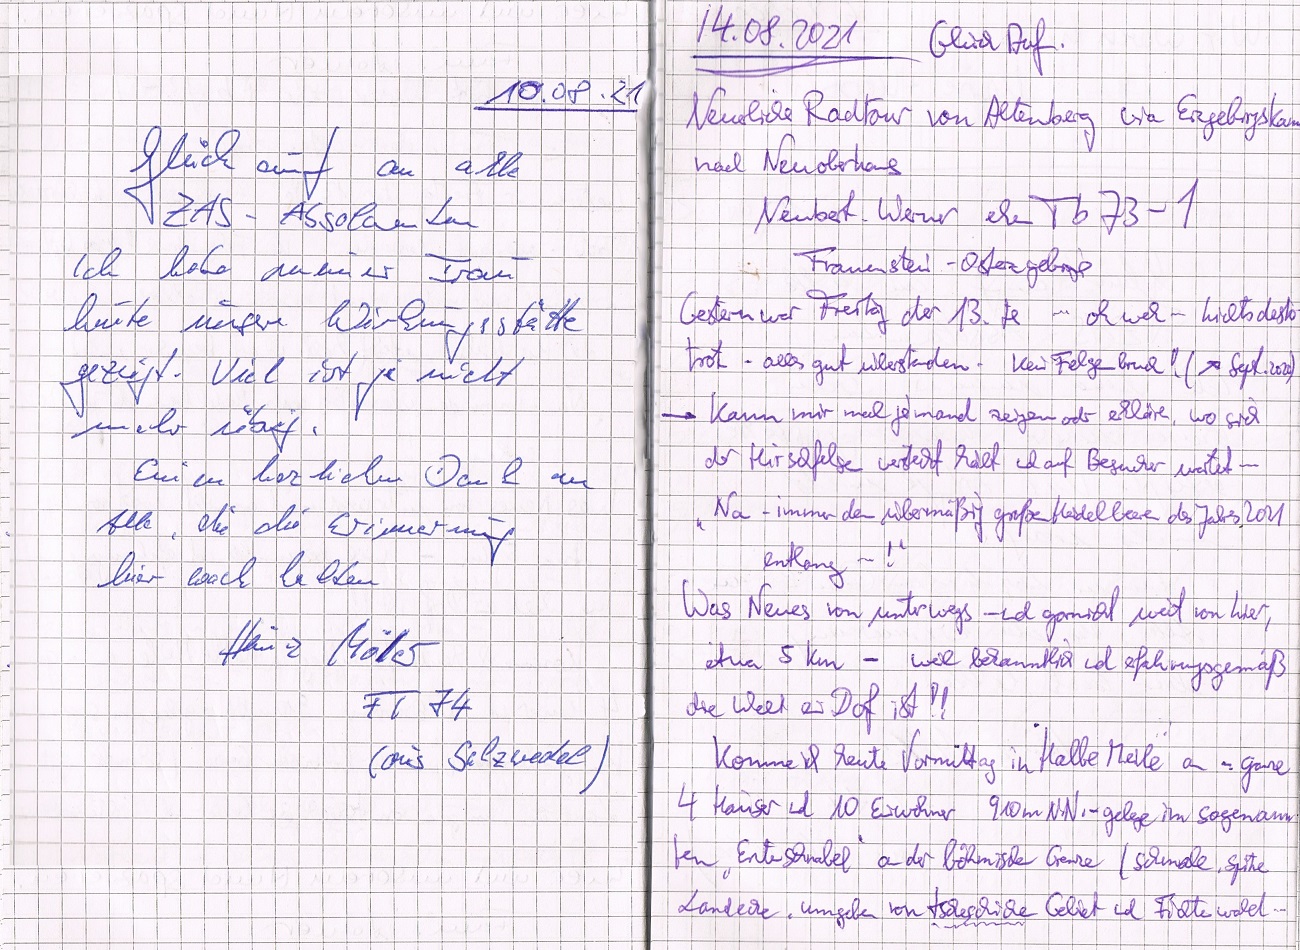 10.08.21
Glück auf an alle
ZAS - Absolventen
Ich habe meiner Frau
heute unsere Wirkungsstätte
gezeigt. Viel ist ja nicht
mehr übrig.
Einen herzlichen Dank an
alle, die die Erinnerung
hier wach halten
Heinz
FT 74
(aus Salzwedel)
14.08.2021 Glück Auf.
Neuerliche Radtour von Altenberg via Erzgebirgskam
nach Neuoberhaus
Neubert Werner ehm Tb 73-1
Frauenstein - Osterzgebirge
Gestern war Freitag der 13. te - oh weh - nichtsdesto
trotz - alles gut überstanden. Kein Felgenbruch!! (→ Sept. 2020)
→ Kann mir mal jemand zeigen oder erklären, wo sich
der Hirschfelge versteckt hält und auf Besucher wartet -
"Na - immer den übermäßig großen Heidelbeeren des Jahres 2021
entlang - !"
Was Neues von unterwegs - und garnicht weit von hier,
etwa 5 km - weil bekanntlich und erfahrungsgemäß
die Welt ein Dorf ist!!
Komme ich heute Vormittag in "Halbe Meile" an - ganze
4 Häuser und 10 Einwohner 910 m NN. - gelegen im sogenann-
ten "Entenschnabel" an der böhmischen Grenze (schmale, spitze
Landecke, umgeben von tschechische Gebiet und Fichtenwald --